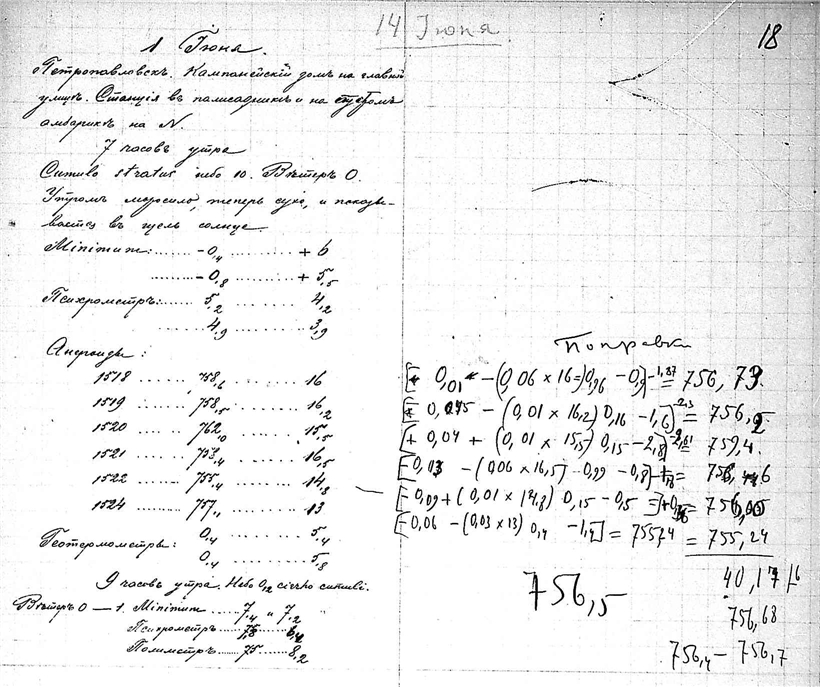 14 Іюня
18
1 Іюня.
Петропавловскъ. Кампанейскій домъ на главной
улицѣ. Станція въ палисадникѣ и на
амбарикѣ на N.
7 часовъ утра
stratus небо 10. Вѣтеръ 0.
Утромъ моросило, теперь сухо, и показы-
вается въ щель солнце.
Minimum: ...... -0,4 ......... +6
......... -0,8 ......... +5,5
Психрометръ: ...... 5,2 ....... 4,2
...... 4,9 ....... 3,9
Анероиды:
1518 ...... 758,6 ...... 16
1519 ...... 758,5 ...... 16,2
1520 ...... 762,0 ...... 15,5
1521 ...... ...... 16,5
1522 ...... 755,4 ...... 14,8
1524 ...... 757,1 ...... 13
Геотермометры: 0,4 ...... 5,4
0,4 ...... 5,8
9 часовъ утра. Небо
Вѣтеръ 0 — 1. Minimum ..... 7,4 и 7,2
Психрометръ
Полиметръ ...... 75 ..... 8,2
Поправки
0,01 - (0,06 × 16=)0,96 - 0,9 -1,87 = 756,73.
- (0,01 × 16,2) 0,16 - 1,6] = 756,2
[+ 0,04 + (0,01 × 15,5) 0,15 - 2,8] = 759,4.
[-0,03 - (0,06 × 16,5) 0,99 - 0,8]
[-0,09 + (0,01 × 14,8) 0,15 - 0,5
[-0,06 - (0,03 × 13) 0,4 - 1,4] = 755,24
40,17/6
756,5
756,68
756,4 - 756,7